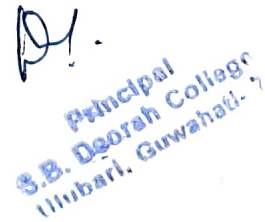 Principal
S.B. Deorah College
Ulubari, Guwahati-7